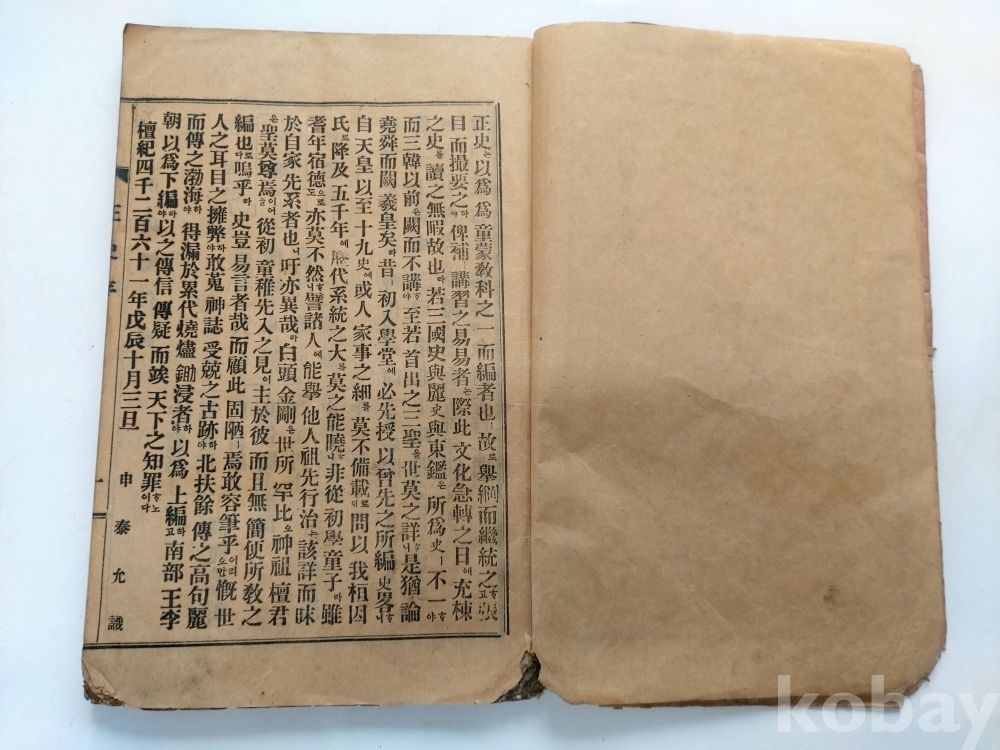 正史는以爲爲童蒙敎科之一而編者也ㅣ故로擧綱而繼統之하고張
目而撮要之하야俾補講習之易易者는際此文化急轉之日에充棟
之史를讀之無暇故也라若三國史與麗史與東鑑은所爲史ㅣ不一하야
而三韓以前은闕而不講하야至若首出之三聖을世莫之詳하니是猶論
堯舜而闕羲皇矣라昔에初入學堂에必先授以曾先之所編史畧하니
自天皇以至十九史에或人家事之細를莫不備載로되問以我桓因
氏로降及五千年에歷代系統之大를莫之能曉하니非從初學童子라雖
耆年宿德으로도亦莫不然하니譬諸人에能擧他人祖先行治는該詳而昧
於自家先系者也니吁亦異哉라白頭金剛은世所罕比오神祖檀君
은聖莫尊焉이어늘從初童稚先入之見이主於彼而且無簡便所敎之
編也로다嗚乎라史豈易言者哉而顧此固陋焉敢容筆乎이리오만慨世
人之耳目之擁弊하야敢蒐神誌受兢之古跡하야北扶餘傳之高句麗
而傳之渤海하야得漏於累代燒燼鋤浸者하야以爲上編하고南部王李
朝以爲下編하야以之傳信傳疑而竢天下之知罪하노이다
檀紀四千二百六十一年戊辰十月三旦 申泰允識
正史序
一
kobay